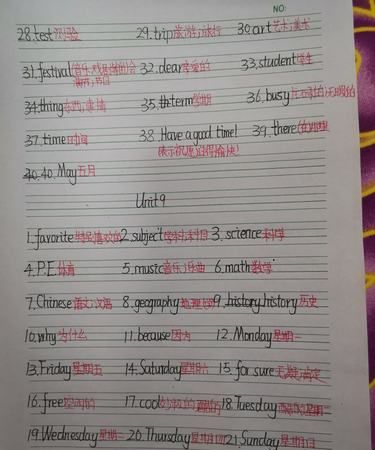 NO:
28.test测验 29.trip旅游;旅行 30.art艺术;美术
31.festival 32.dear亲爱的 33.student学生
34.thing东西;事情 35.term学期 36.busy
37.time时间 38 Have a good time! 39.there
(表示祝愿)过得愉快!
40.May五月
Unit9
1.favorite特别喜欢的 2.subject学科;科目 3.science科学
4.P.E.体育 5.music音乐;乐曲 6.math数学
7.Chinese语文;汉语 8.geography地理(学) 9.history history历史
10.why为什么 11.because因为 12.Monday星期一
13.Friday星期五 14.Saturday星期六 15.for sure无疑;肯定
16.free空闲的 17.cool 18.Tuesday
19.Wednesday 20.Thursday星期四 21.Sunday星期日